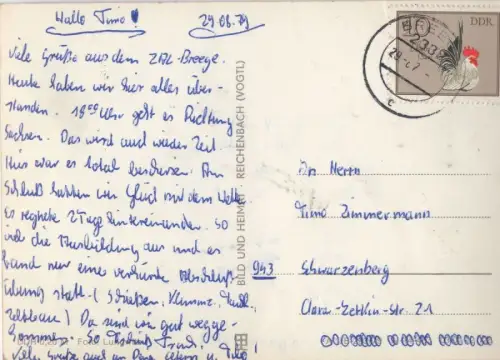 Hallo Timo! 29.06.79
viele Grüße aus dem ZAL-Breege.
Heute haben wir hier alles über-
standen. 18⁰⁰ Uhr geht es Richtung
Sachsen. Das wird auch wieder Zeit.
Hier war es total beschissen. Am
Schluß hatten wir Glück mit dem Wetter.
Es regnete 2 Tage hintereinander. So
viel die Ausbildung aus und es
fand nur eine verkürzte Abschluß-
übung statt. (Schießen,
Da sind wir gut wegge-
kommen.
Viele Grüße auch an Deine Eltern u.
BILD UND HEIMAT REICHENBACH (VOGTL)
DDR
BREEGE
2335
An Herrn
Timo Zimmermann
943 Schwarzenberg
Clara-Zetkin-Str. 21